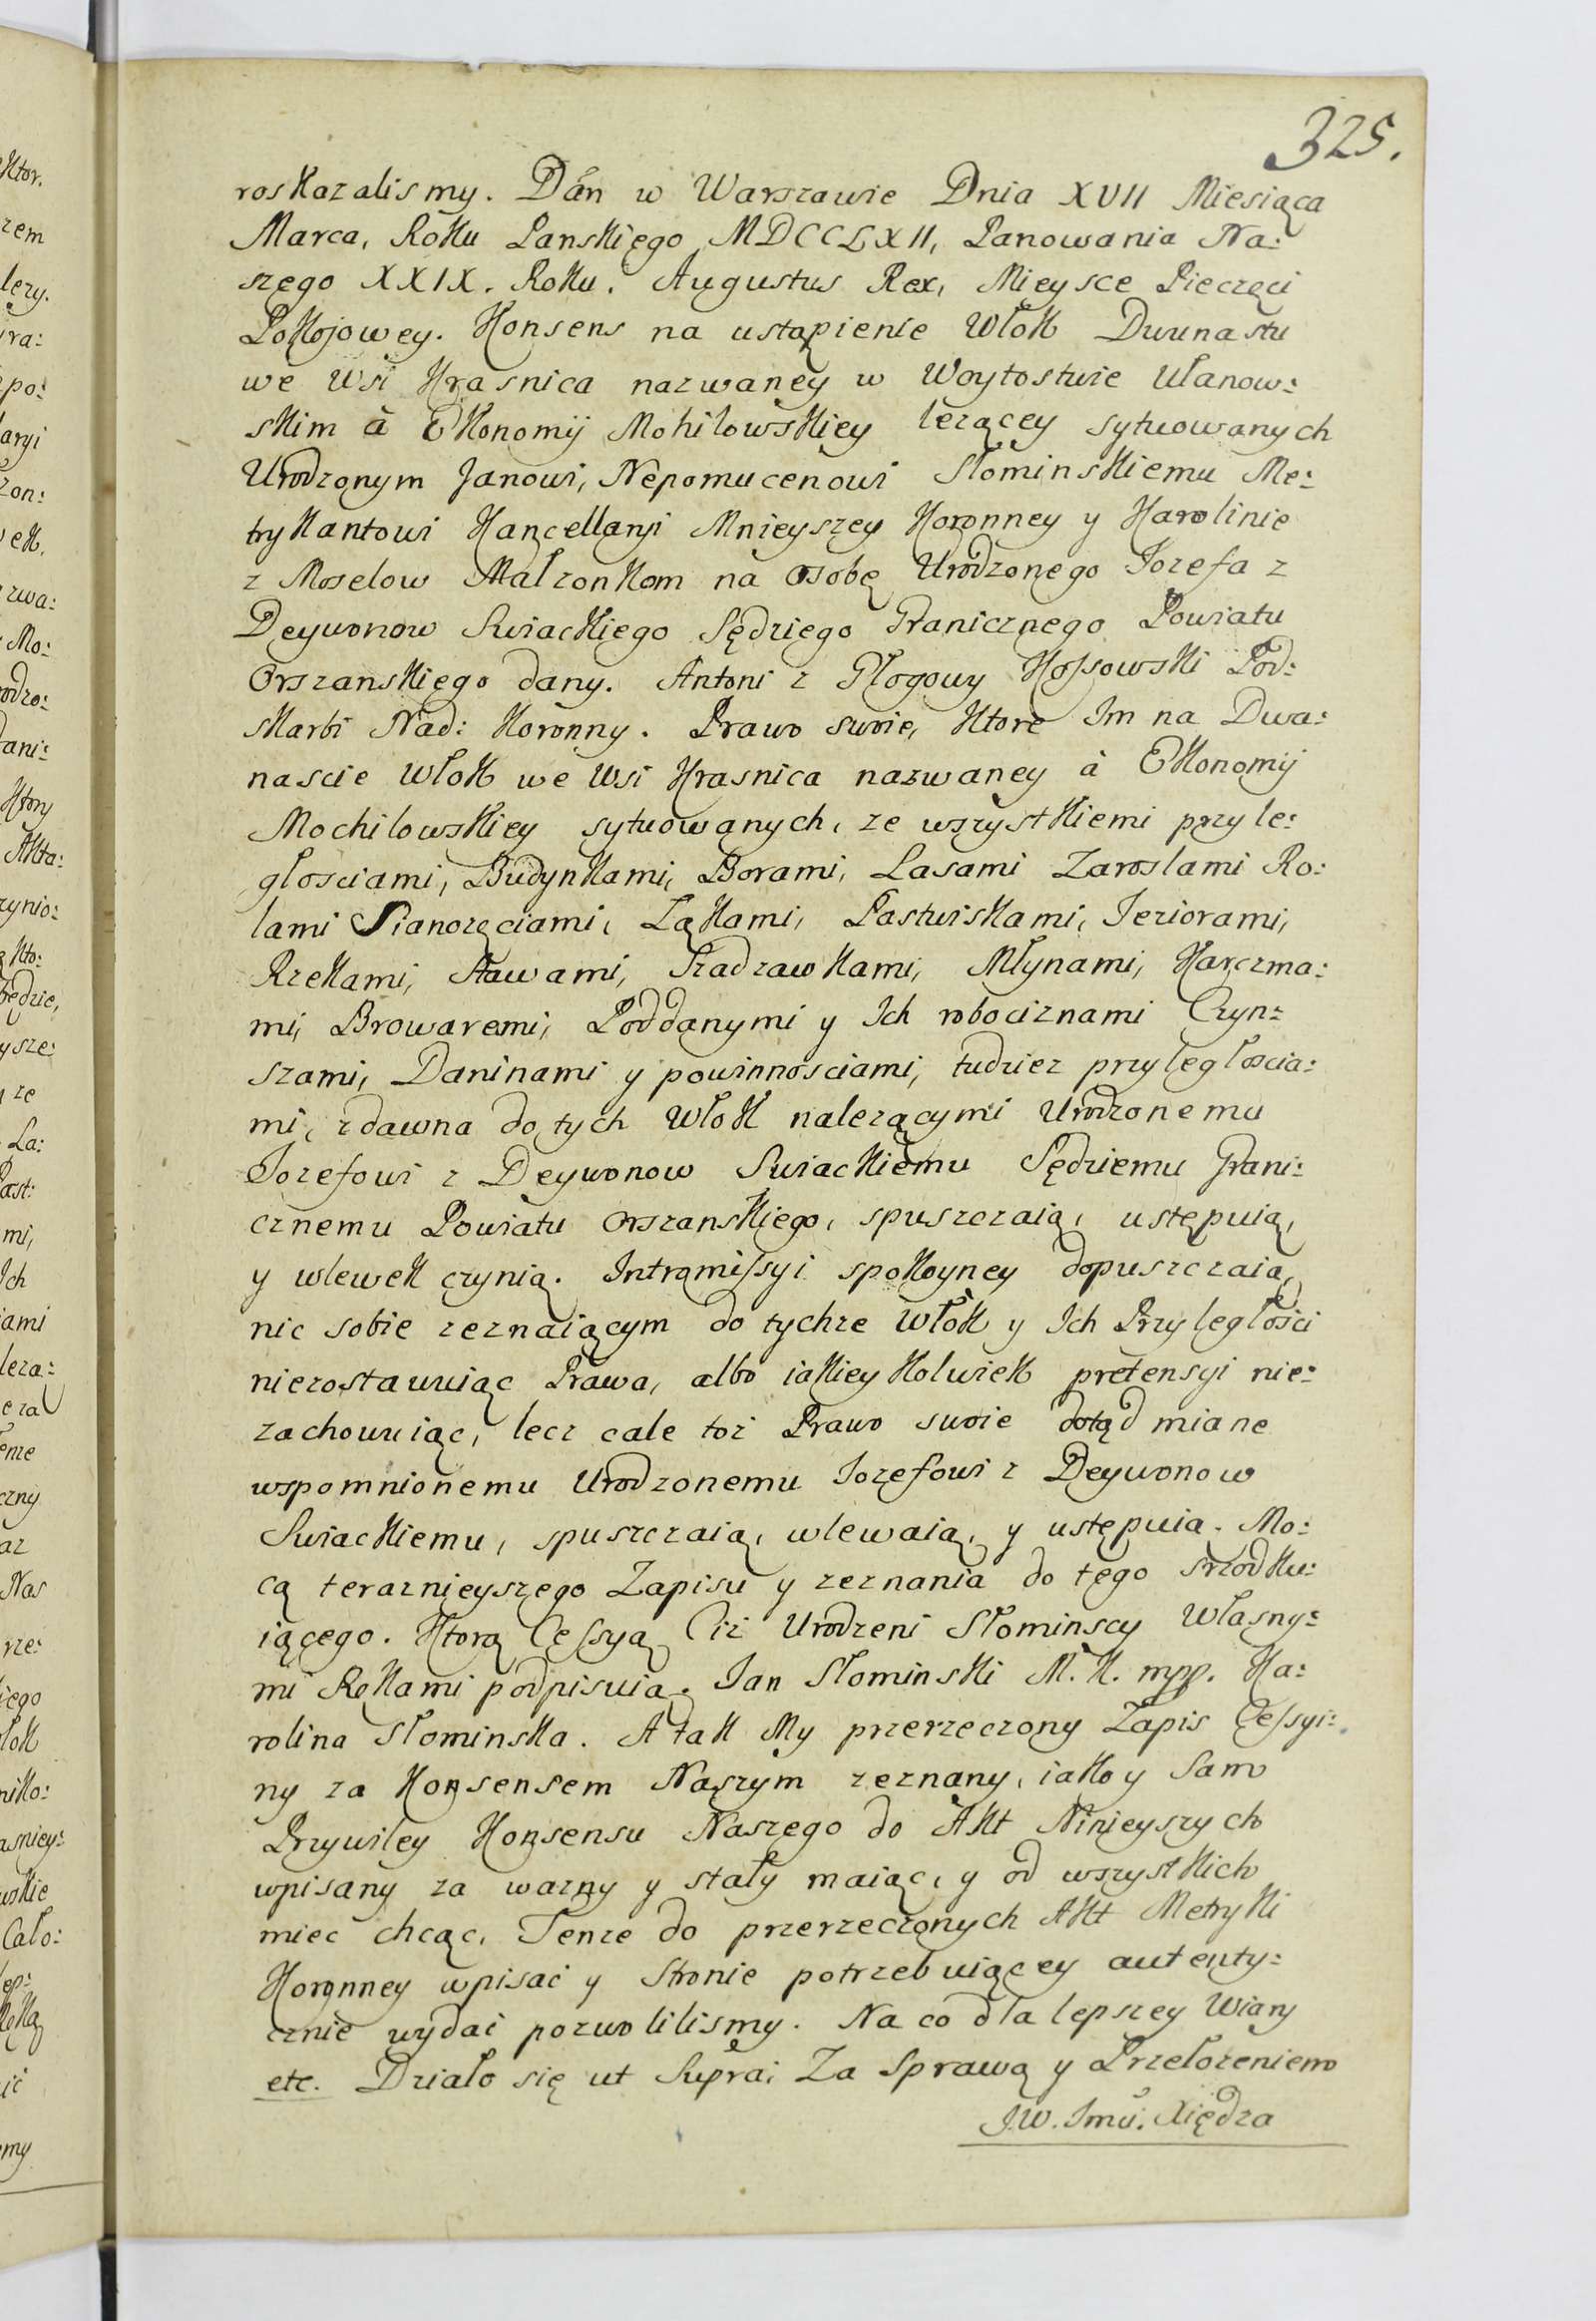 325.
roskazalismy. Dán w Warszawie Dnia XVII Miesiąca
Marca, Roku Panskiego MDCCLXII, Panowania Na:
szego XXIX. Roku. Augustus Rex, Mieysce Pieczęci
Pokojowey. Konsens na ustąpienie Włok Dwunastu
we Wsi Krasnica nazwaney w Woytostwie Ułanow:
skim à Ekonomij Mohilowskiey lezącey sytuowanych
Urodzonym Janowi, Nepomucenowi Słominskiemu Me:
trykantowi Kancellaryi Mnieyszey Koronney y Karolinie
z Moselow Małzonkom na osobę Urodzonego Jozefa z
Deywonow Swiackiego Sędziego Granicznego Powiatu
Orszanskiego dany. Antoni z Głogowy Kossowski Pod:
skarbi Nad: Koronny. Prawo swoie, ktore Im na Dwa:
nascie Włok we Wsi Krasnica nazwaney à Ekonomij
Mochilowskiey sytuowanych, ze wszystkiemi przyle:
głosciami, Budynkami, Borami, Lasami Zaroslami Ro:
lami Sianozęciami, Łąkami, Pastwiskami, Jeziorami,
Rzekami, Stawami, Sadzawkami, Młynami, Karczma:
mi, Browarami, Poddanymi y Ich robociznami Czyn:
szami, Daninami y powinnosciami, tudziez przyległoscia:
mi, zdawna do tych Włok nalezącymi Urodzonemu
Jozefowi z Deywonow Swiackiemu Sędziemu Grani:
cznemu Powiatu Orszanskiego, spuszczaią, ustępuią,
y wlewek czynią. Intromissyi spokoyney dopuszczaią,
nic sobie zeznaiącym do tychze Włok y Ich Przyległości
niezostawuiąc Prawa, albo iakiey kolwiek pretensyi nie:
zachowuiąc, lecz cale toż Prawo swoie dotąd miane
wspomnionemu Urodzonemu Jozefowi z Deywonow
Swiackiemu, spuszczaią, wlewaią, y ustępuią. Mo:
cą teraznieyszego Zapisu y zeznania do tego srzodku:
iącego. Ktorą Cessyą Ciż Urodzeni Słominscy Własny:
mi Rękami podpisuią. Jan Słominski M. K. mpp. Ka:
rolina Słominska. A tak My przerzeczony Zapis Cessyi:
ny za Konsensem Naszym zeznany, iako y Samo
Przywiley Konsensu Naszego do Akt Ninieyszych
wpisany za wazny y stały maiąc, y od wszystkich
miec chcąc, Tenze do przerzeczonych Akt Metryki
Koronney wpisać y Stronie potrzebuiącey autenty:
cznie wydać pozwolilismy. Na co dla lepszey Wiary
etc. Działo się ut Supra; Za Sprawą y Przełozeniem
J. W. Jmći. Xiędza